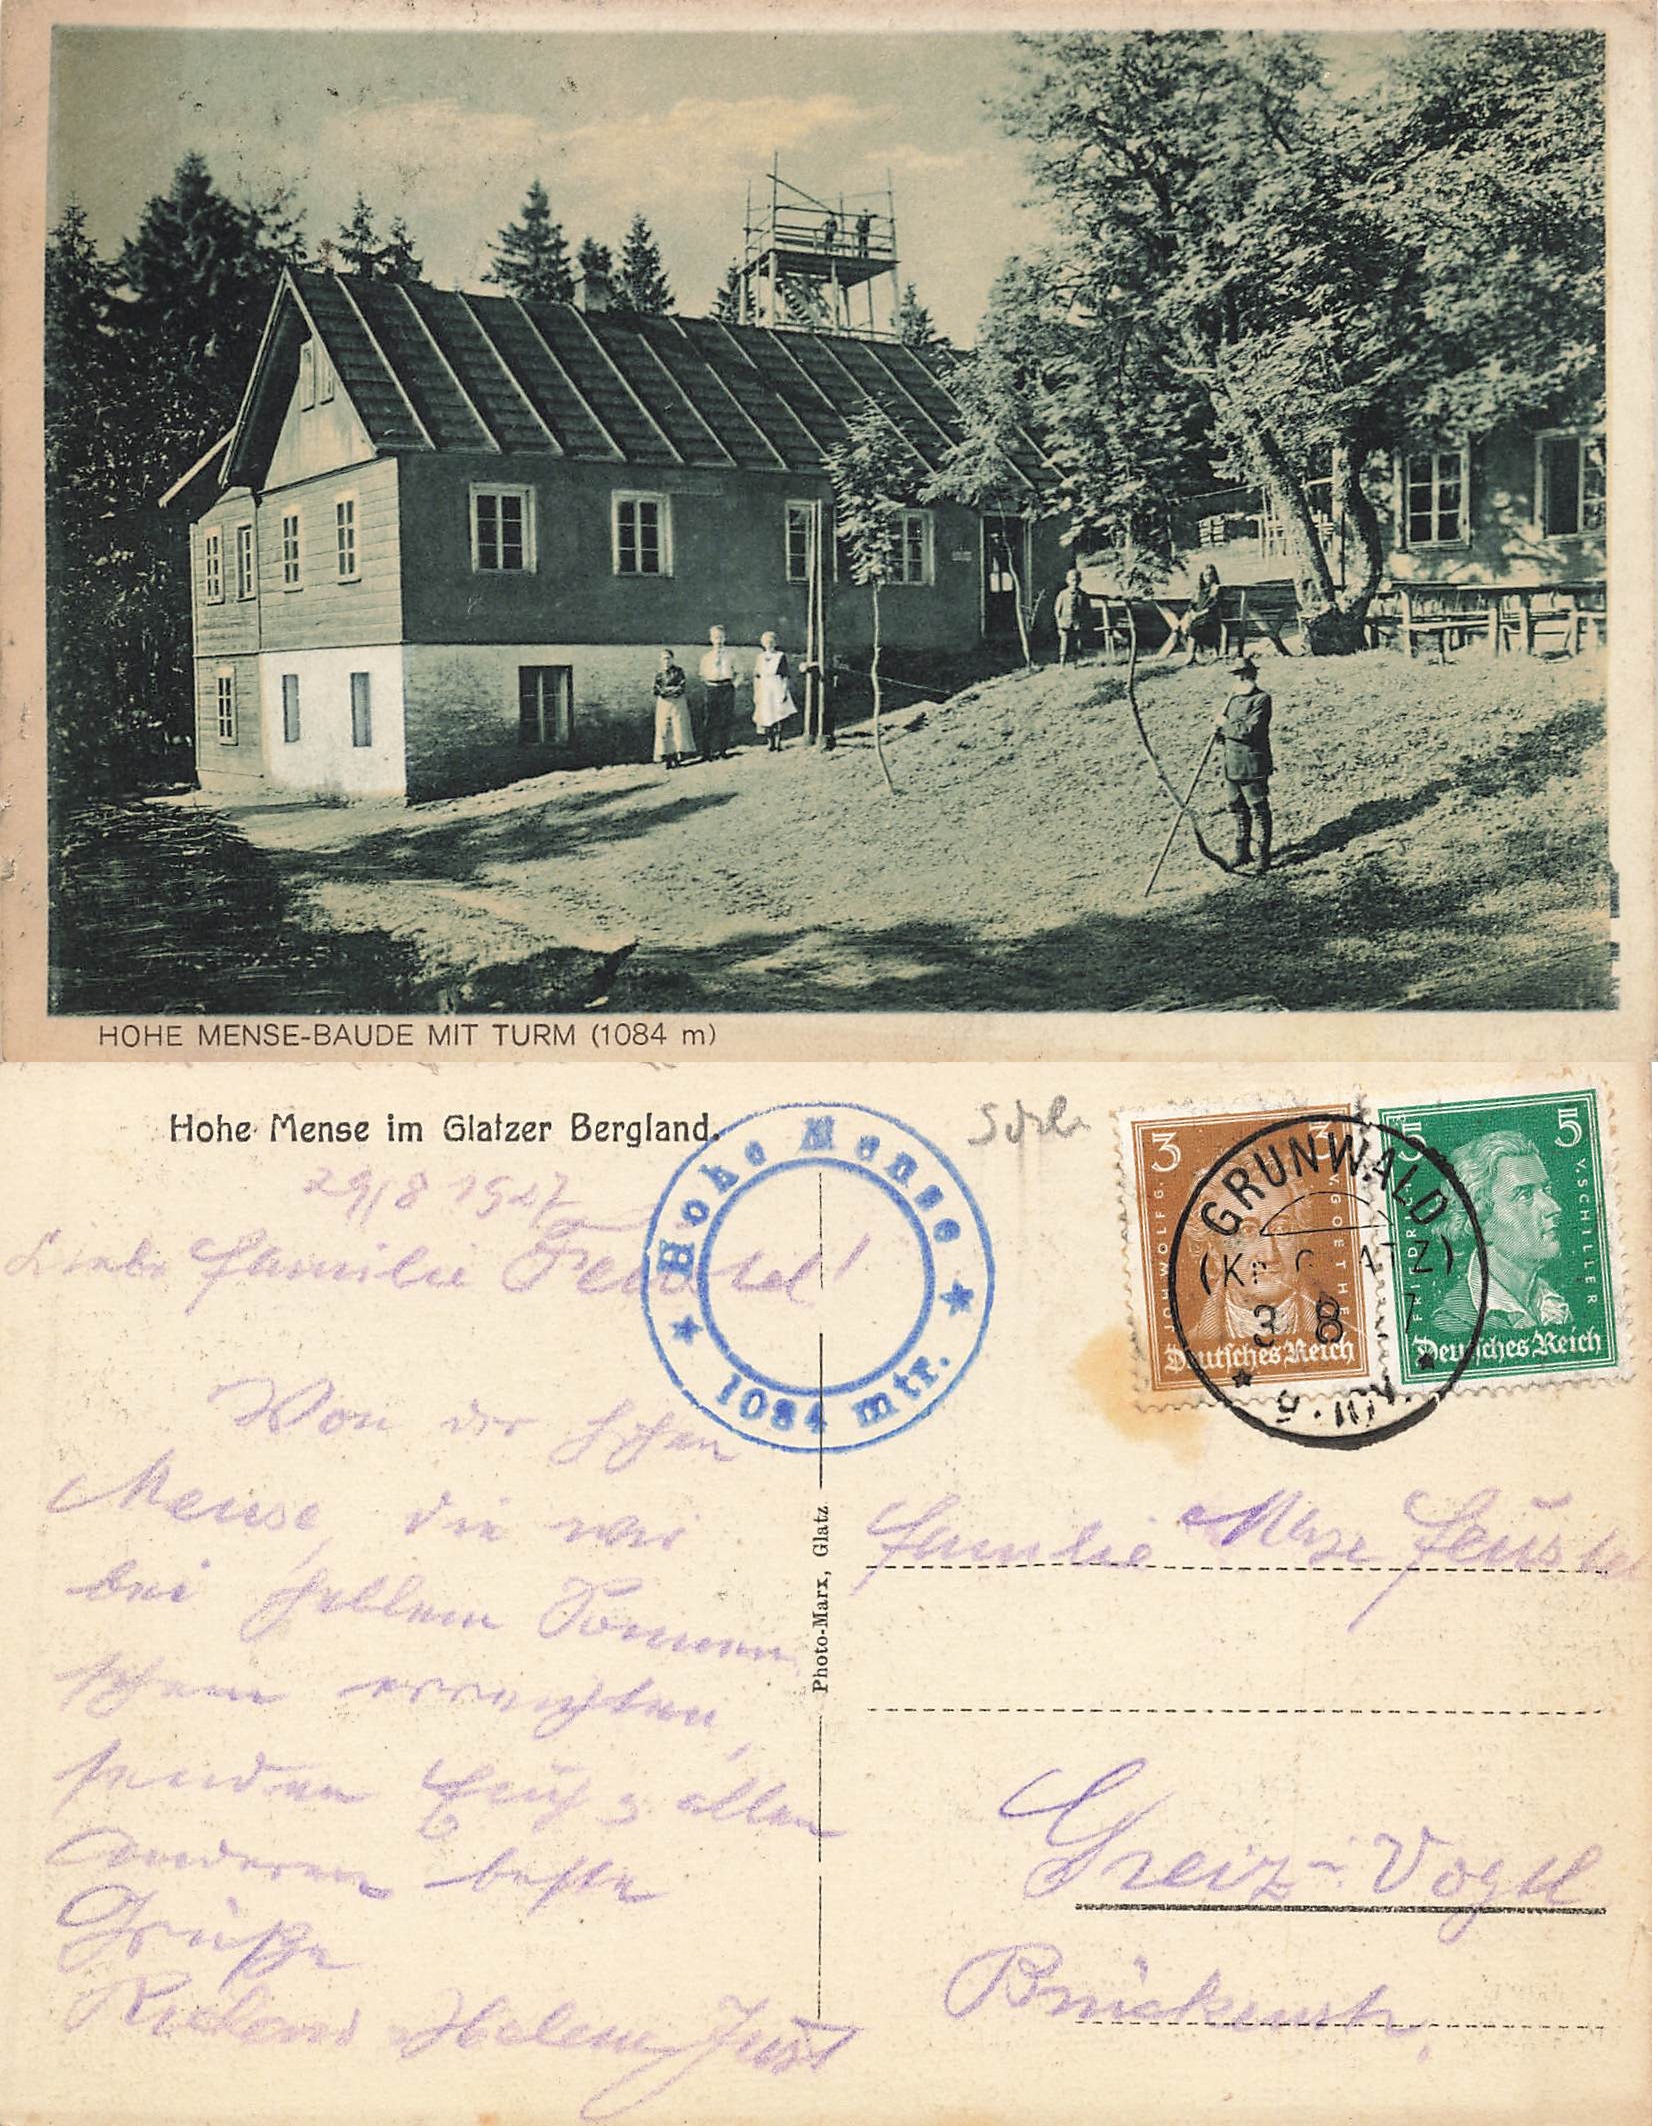 HOHE MENSE-BAUDE MIT TURM (1084 m)
Hohe Mense im Glatzer Bergland.
29/8 1927
Liebe Familie
Von der Hohen
Mense, die wir
bei hellem Sonnen
schein erreichten,
senden Euch u. allen
anderen beste
Grüße
Helene Just
Hohe Mense
1084 mtr.
Photo-Marx, Glatz
3 3
JOH. WOLFG. V. GOETHE
Deutsches Reich
5 5
FRIEDR. V. SCHILLER
Deutsches Reich
GRUNWALD
8
Familie Max
Greiz i. Vogtl
Brückenstr.